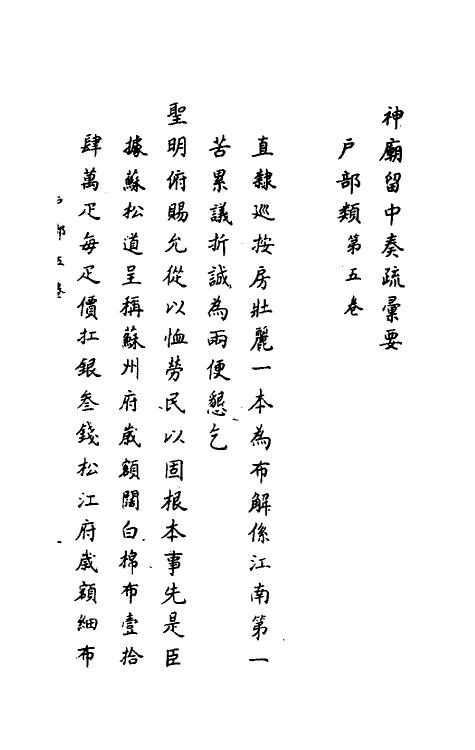 神廟留中奏疏彙要
戶部類第五卷
直隸巡按房壯麗一本為布解係江南第一
苦累議折誠為兩便懇乞
聖明俯賜允從以恤勞民以固根本事先是臣
據蘇松道呈稱蘇州府歲額闊白棉布壹拾
肆萬疋每疋價扛銀叁錢松江府歲額細布
戶部五卷
一